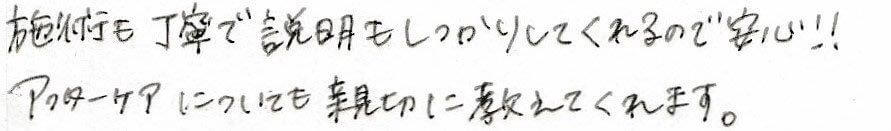 施術も丁寧で説明もしっかりしてくれるので安心!!
アフターケアについても親切に教えてくれます。